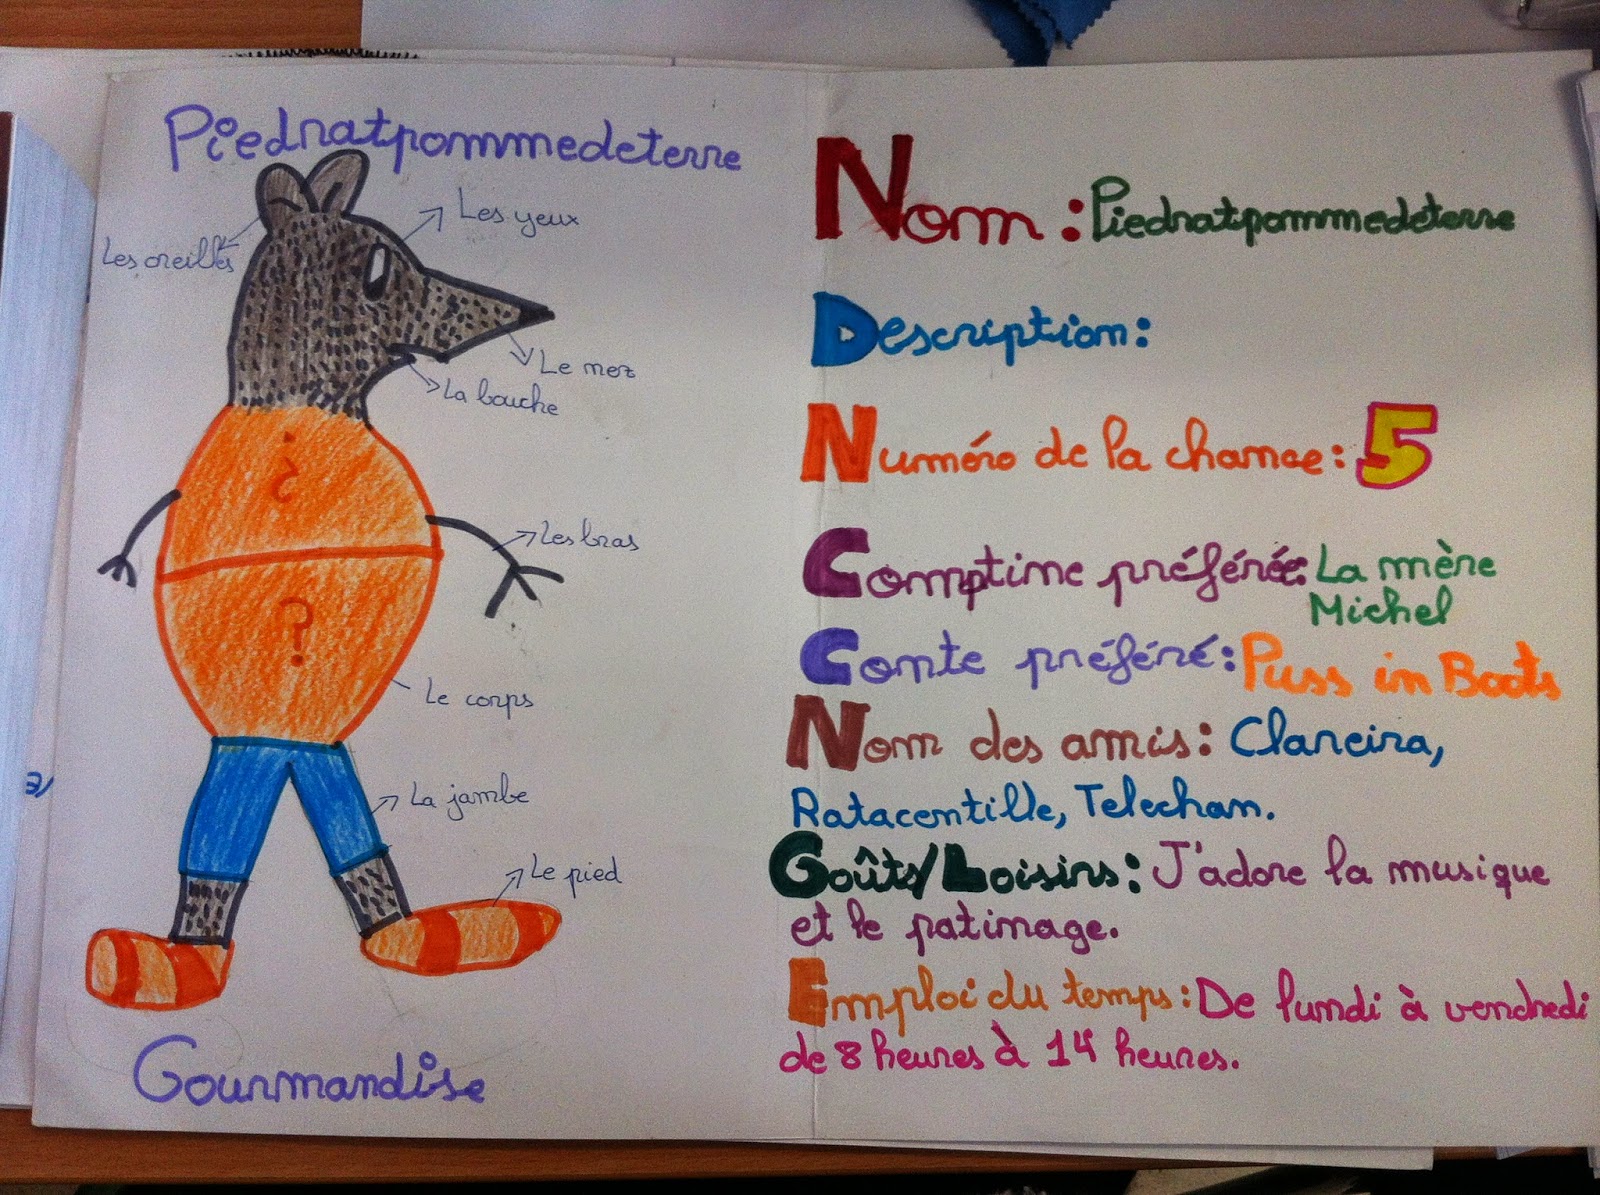 Piednatpommedeterre
Les yeux
Les oreilles
Le nez
La bouche
¿
Les bras
?
Le corps
La jambe
Le pied
Gourmandise
Nom : Piednatpommedeterre
Description:
Numéro de la chance: 5
Comptine préférée: La mère
Michel
Conte préféré: Puss in Boots
Nom des amis: Clareira,
Ratacentille, Telechan.
Goûts/Loisirs: J'adore la musique
et le patinage.
Emploi du temps: De lundi à vendredi
de 8 heures à 14 heures.